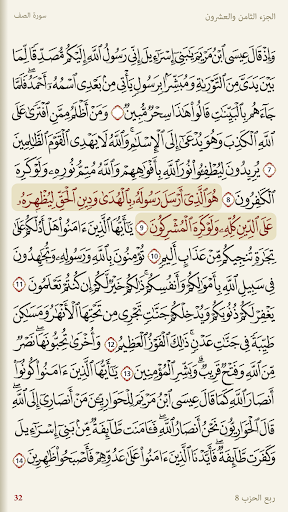 الجزء الثامن والعشرون
سورة الصف
وَإِذْ قَالَ عِيسَى ٱبْنُ مَرْيَمَ يَـٰبَنِىٓ إِسْرَٰٓءِيلَ إِنِّى رَسُولُ ٱللَّهِ إِلَيْكُم مُّصَدِّقًا لِّمَا
بَيْنَ يَدَىَّ مِنَ ٱلتَّوْرَىٰةِ وَمُبَشِّرًۢا بِرَسُولٍ يَأْتِى مِنۢ بَعْدِى ٱسْمُهُۥٓ أَحْمَدُ ۖ فَلَمَّا
جَآءَهُم بِٱلْبَيِّنَـٰتِ قَالُوا۟ هَـٰذَا سِحْرٌ مُّبِينٌ ۝ وَمَنْ أَظْلَمُ مِمَّنِ ٱفْتَرَىٰ عَلَى
ٱللَّهِ ٱلْكَذِبَ وَهُوَ يُدْعَىٰٓ إِلَى ٱلْإِسْلَـٰمِ ۚ وَٱللَّهُ لَا يَهْدِى ٱلْقَوْمَ ٱلظَّـٰلِمِينَ
7 يُرِيدُونَ لِيُطْفِـُٔوا۟ نُورَ ٱللَّهِ بِأَفْوَٰهِهِمْ وَٱللَّهُ مُتِمُّ نُورِهِۦ وَلَوْ كَرِهَ
ٱلْكَـٰفِرُونَ 8 هُوَ ٱلَّذِىٓ أَرْسَلَ رَسُولَهُۥ بِٱلْهُدَىٰ وَدِينِ ٱلْحَقِّ لِيُظْهِرَهُۥ
عَلَى ٱلدِّينِ كُلِّهِۦ وَلَوْ كَرِهَ ٱلْمُشْرِكُونَ 9 يَـٰٓأَيُّهَا ٱلَّذِينَ ءَامَنُوا۟ هَلْ أَدُلُّكُمْ عَلَىٰ
تِجَـٰرَةٍ تُنجِيكُم مِّنْ عَذَابٍ أَلِيمٍ 10 تُؤْمِنُونَ بِٱللَّهِ وَرَسُولِهِۦ وَتُجَـٰهِدُونَ
فِى سَبِيلِ ٱللَّهِ بِأَمْوَٰلِكُمْ وَأَنفُسِكُمْ ۚ ذَٰلِكُمْ خَيْرٌ لَّكُمْ إِن كُنتُمْ تَعْلَمُونَ 11
يَغْفِرْ لَكُمْ ذُنُوبَكُمْ وَيُدْخِلْكُمْ جَنَّـٰتٍ تَجْرِى مِن تَحْتِهَا ٱلْأَنْهَـٰرُ وَمَسَـٰكِنَ
طَيِّبَةً فِى جَنَّـٰتِ عَدْنٍ ۚ ذَٰلِكَ ٱلْفَوْزُ ٱلْعَظِيمُ 12 وَأُخْرَىٰ تُحِبُّونَهَا ۖ نَصْرٌ
مِّنَ ٱللَّهِ وَفَتْحٌ قَرِيبٌ ۗ وَبَشِّرِ ٱلْمُؤْمِنِينَ 13 يَـٰٓأَيُّهَا ٱلَّذِينَ ءَامَنُوا۟ كُونُوٓا۟
أَنصَارَ ٱللَّهِ كَمَا قَالَ عِيسَى ٱبْنُ مَرْيَمَ لِلْحَوَارِيِّـۧنَ مَنْ أَنصَارِىٓ إِلَى ٱللَّهِ ۖ
قَالَ ٱلْحَوَارِيُّونَ نَحْنُ أَنصَارُ ٱللَّهِ ۖ فَـَٔامَنَت طَّآئِفَةٌ مِّنۢ بَنِىٓ إِسْرَٰٓءِيلَ
وَكَفَرَت طَّآئِفَةٌ ۖ فَأَيَّدْنَا ٱلَّذِينَ ءَامَنُوا۟ عَلَىٰ عَدُوِّهِمْ فَأَصْبَحُوا۟ ظَـٰهِرِينَ 14
ربع الحزب 8
32